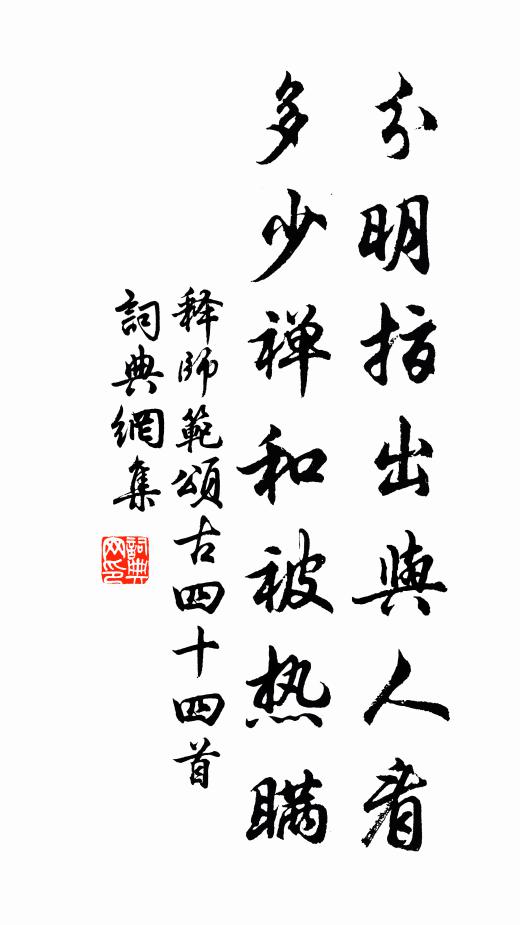 分明指出與人看
多少禅和被热瞒
释師範頌古四十四首
詞典網集
詞典
网印